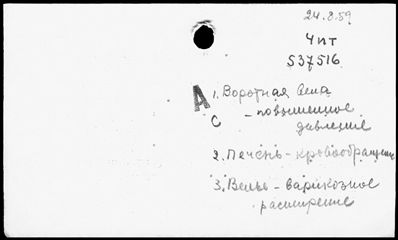 24.8.59
4 пт
537516
А 1. Воротная вена
С - повышенное
давление
2. Печень - кровообращение
3. Вены - варикозное
расширение